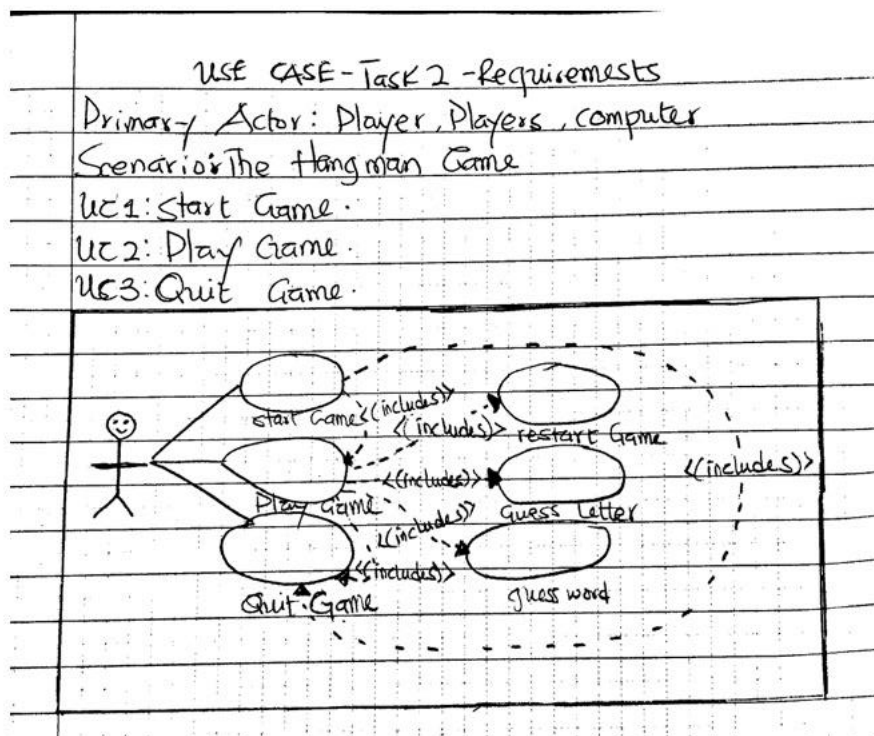 USE CASE-Task 2 -Requiremests
Primary Actor: Player, Players, computer
Scenario: The Hangman Game
UC1: Start Game.
UC2: Play Game.
UC3: Quit Game.
start Game
<<includes>>
<<includes>>
restart Game
<<includes>>
<<includes>>
Play Game
guess Letter
<<includes>>
<<includes>>
Quit Game
guess word